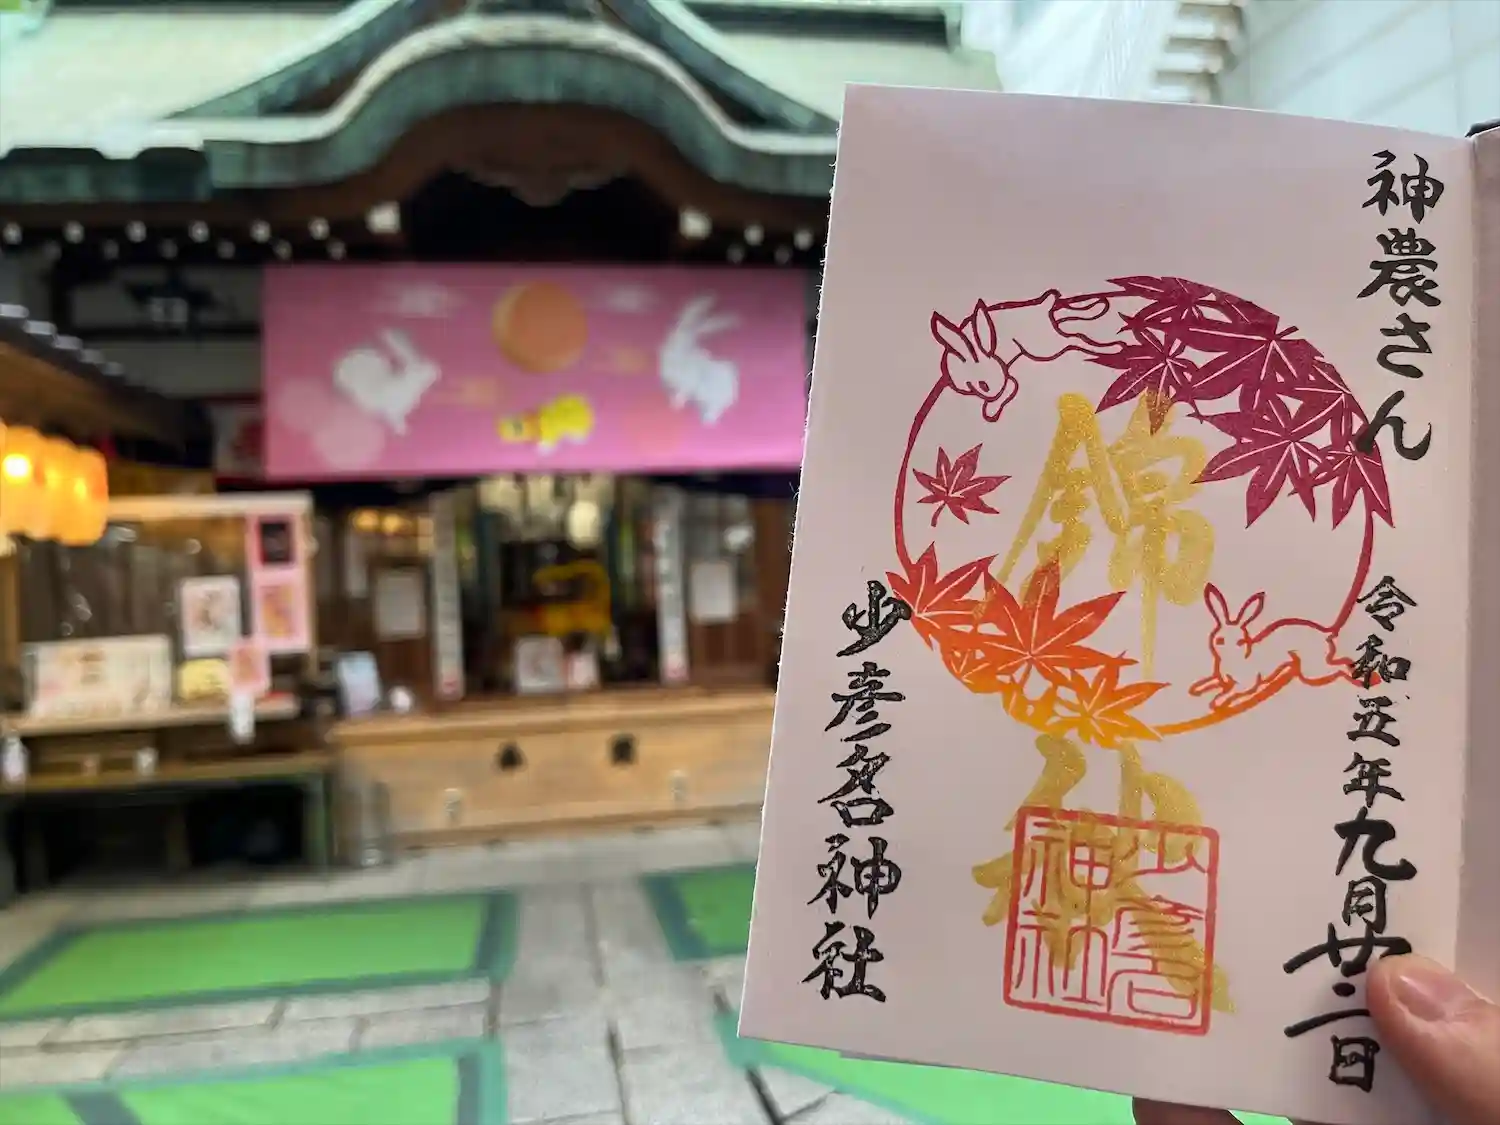 神農さん
令和五年九月廿二日
錦秋
少彦名神社
少彦名
神社